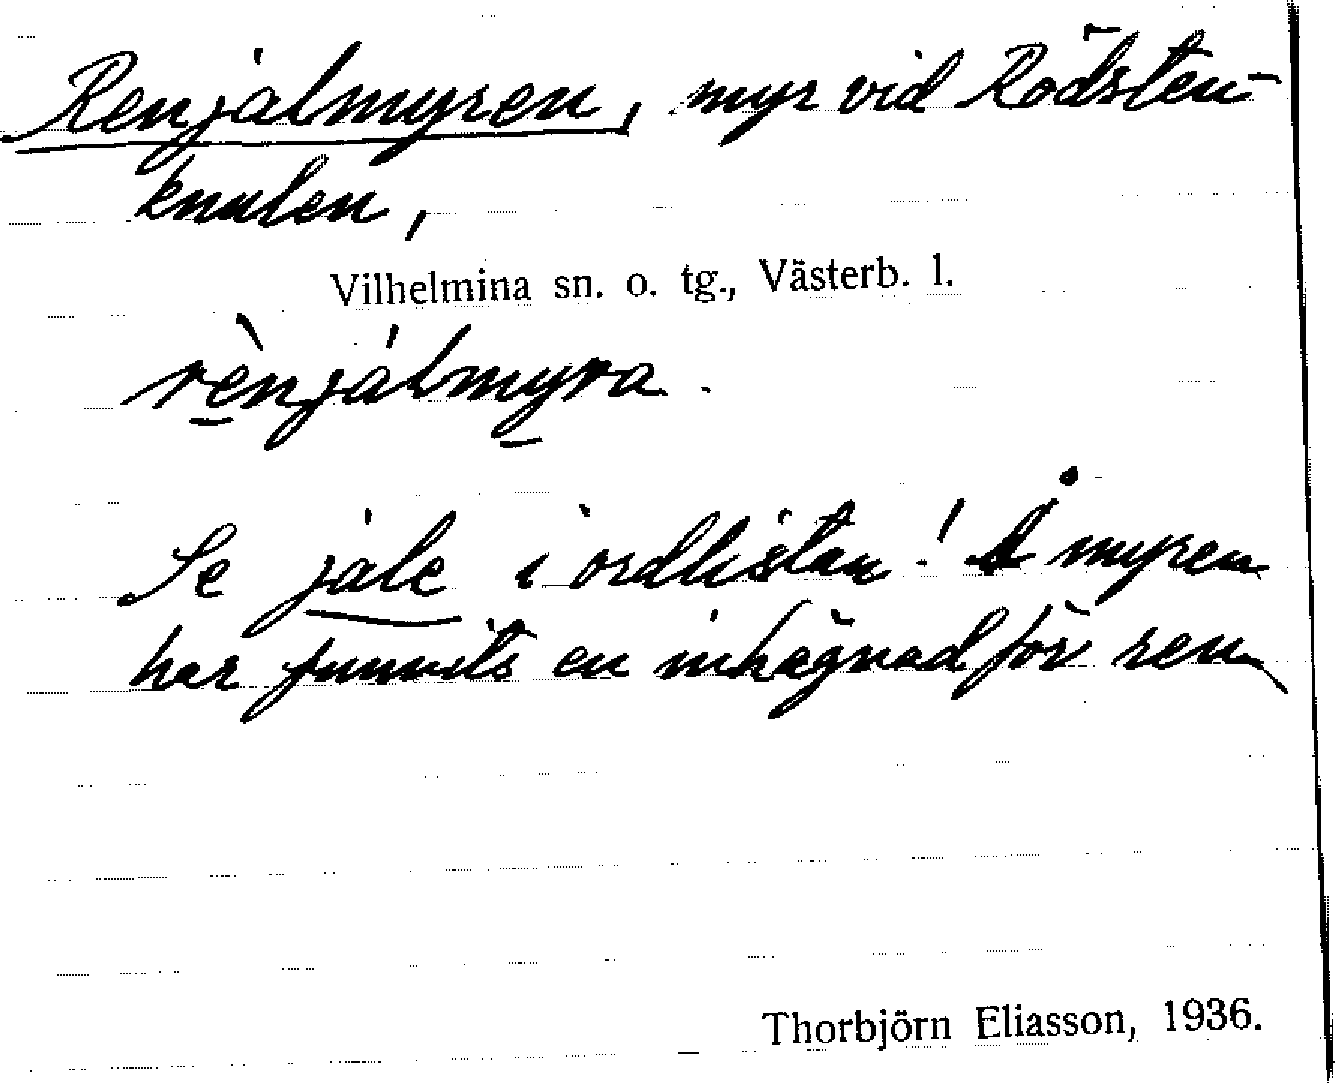 Renjalmyren, myr vid Rödsten-
knulen,
Vilhelmina sn. o. tg., Västerb. l.
rènjálmyra.
Se jale i ordlistan! Å myren
har funnits en inhägnad för ren
Thorbjörn Eliasson, 1936.